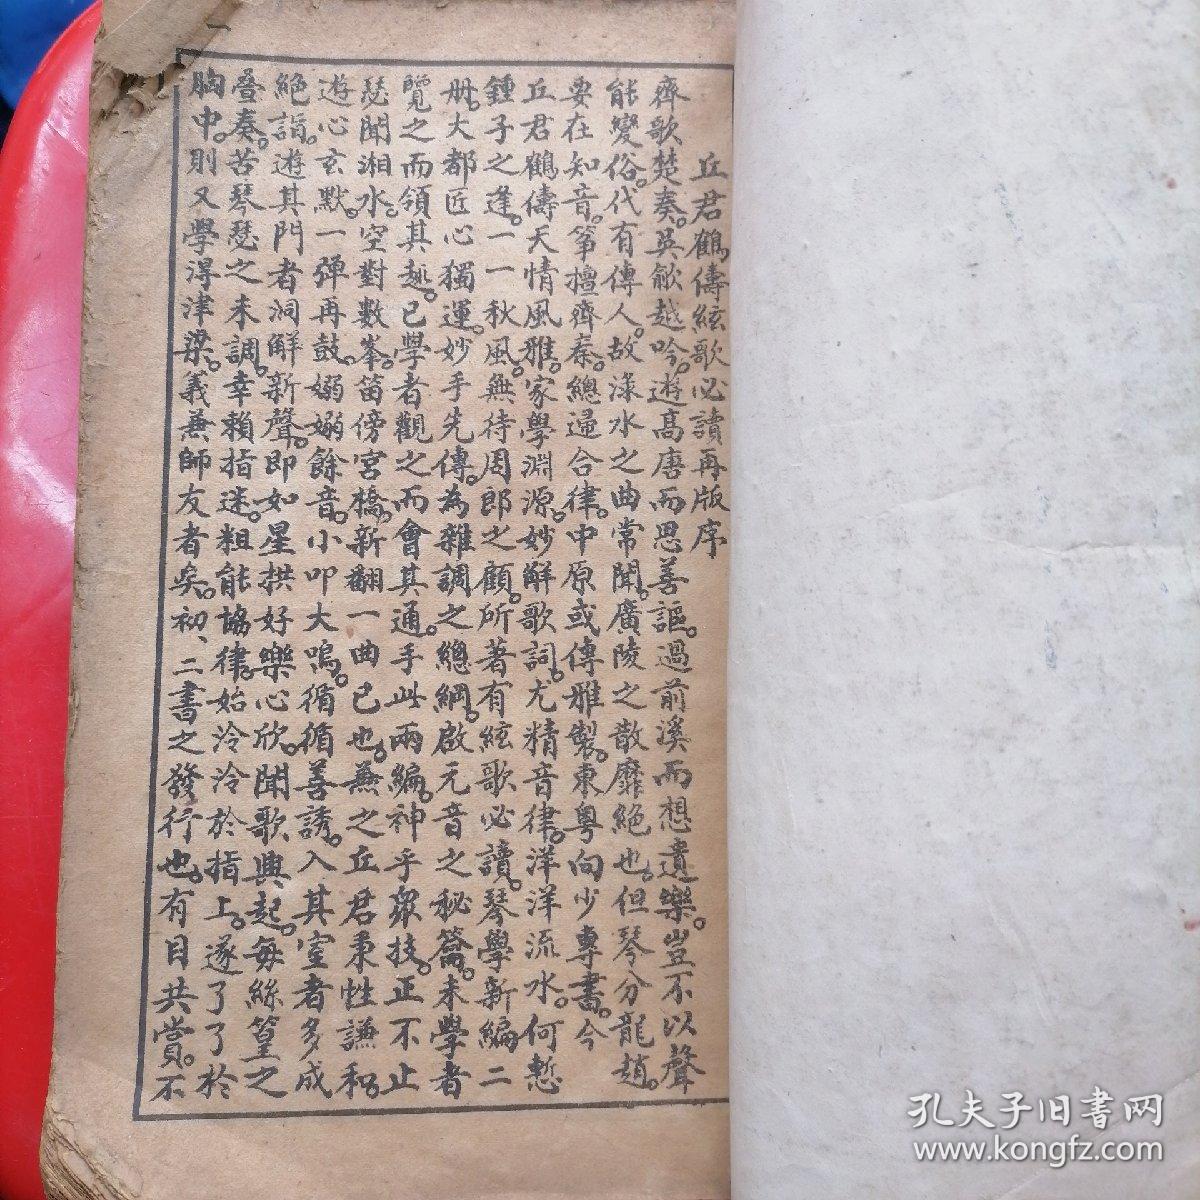 丘君鶴儔絃歌必讀再版序
齊歌楚奏。吳歈越吟。遊高唐而思善謳。過前溪而想遺樂。豈不以聲
能變俗。代有傳人。故淥水之曲常聞。廣陵之散靡絕也。但琴分龍趙。
要在知音。箏擅齊秦。總逼合律。中原或傳雅製。東粵向少專書。今
丘君鶴儔天情風雅。家學淵源。妙解歌詞。尤精音律。洋洋流水。何慙
鍾子之逢。一一秋風。無待周郎之顧。所著有絃歌必讀。琴學新編二
冊。大都匠心獨運。妙手先傳。為雜調之總綱。啟元音之秘籥。未學者
覽之而領其趣。已學者觀之而會其通。手此兩編。神乎眾技。正不止
瑟聞湘水。空對數峯。笛傍宮橋。新翻一曲已也。兼之丘君秉性謙和。
遊心玄默。一彈再鼓。嫋嫋餘音。小叩大鳴。循循善誘。入其室者多成
絕詣。遊其門者洞解新聲。即如星拱好樂心欣。聞歌興起。每絲篁之
疊奏。苦琴瑟之未調。幸賴指迷。粗能協律。始泠泠於指上。遂了了於
胸中。則又學得津梁。義兼師友者矣。初、二書之發行也。有目共賞。不
孔夫子旧书网
www.kongfz.com